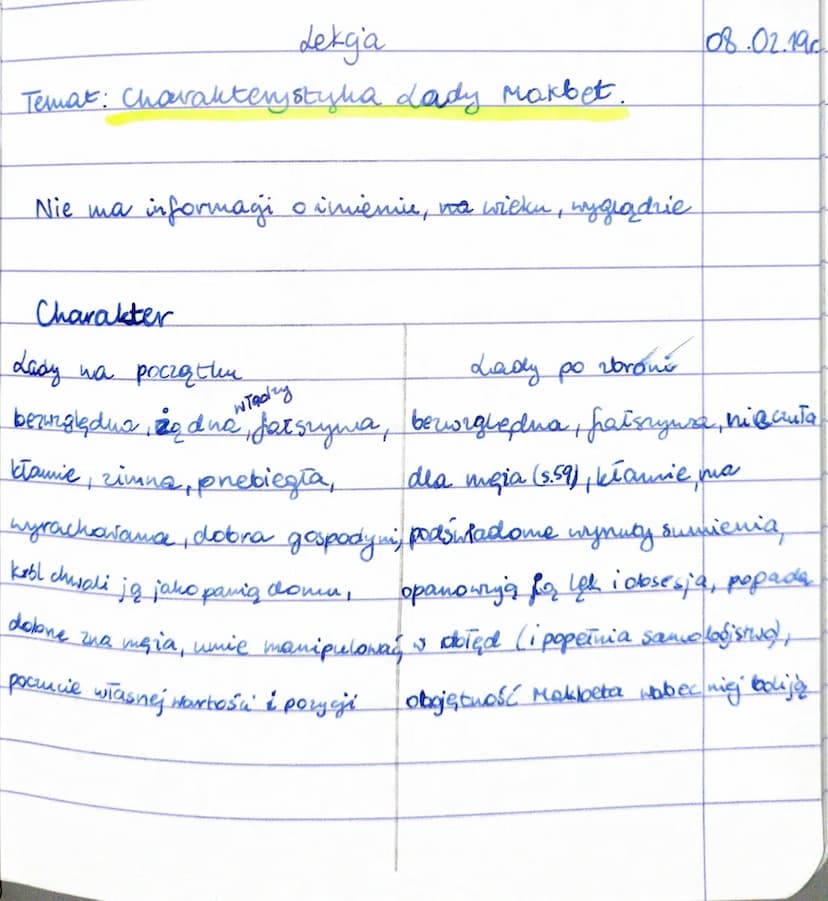 Lekcja 08.02.19r.
Temat: Charakterystyka Lady Makbet.
Nie ma informacji o imieniu, na wieku, wyglądzie
Charakter
Lady na początku
bezwzględna, żądna władzy, fałszywa,
kłamie, zimna, przebiegła,
wyrachowana, dobra gospodyni,
król chwali ją jako panią domu,
dobrze zna męża, umie manipulować,
poczucie własnej wartości i pozycji
Lady po zbrodni
bezwzględna, fałszywa, nieczuła
dla męża (s.59), kłamie, ma
podświadome wyrzuty sumienia,
opanowują ją lęk i obsesja, popada
w obłęd (i popełnia samobójstwo),
obojętność Makbeta wobec niej boli ją